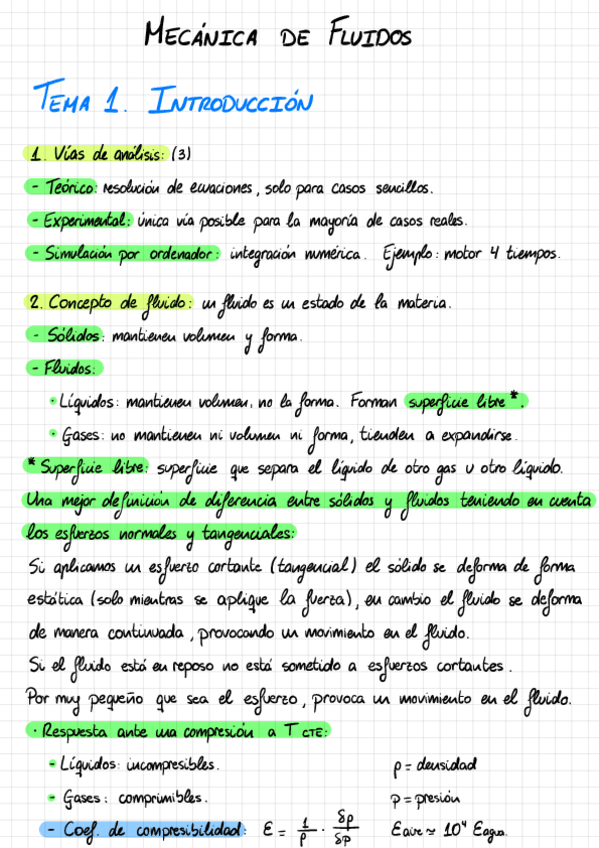 MECÁNICA DE FLUIDOS
TEMA 1. INTRODUCCIÓN
1. Vías de análisis: (3)
- Teórico: resolución de ecuaciones, solo para casos sencillos.
- Experimental: única vía posible para la mayoría de casos reales.
- Simulación por ordenador: integración numérica. Ejemplo: motor 4 tiempos.
2. Concepto de fluido: un fluido es un estado de la materia.
- Sólidos: mantienen volumen y forma.
- Fluidos:
• Líquidos: mantienen volumen, no la forma. Forman superficie libre*.
• Gases: no mantienen ni volumen ni forma, tienden a expandirse.
* Superficie libre: superficie que separa el líquido de otro gas u otro líquido.
Una mejor definición de diferencia entre sólidos y fluidos teniendo en cuenta
los esfuerzos normales y tangenciales:
Si aplicamos un esfuerzo cortante (tangencial) el sólido se deforma de forma
estática (solo mientras se aplique la fuerza), en cambio el fluido se deforma
de manera continuada, provocando un movimiento en el fluido.
Si el fluido está en reposo no está sometido a esfuerzos cortantes.
Por muy pequeño que sea el esfuerzo, provoca un movimiento en el fluido.
· Respuesta ante una compresión a T CTE:
- Líquidos: incompresibles. ρ = densidad
- Gases: comprimibles. p = presión
- Coef. de compresibilidad: E = 1/ρ · δρ/δp Eaire ≈ 10⁴ Eagua.